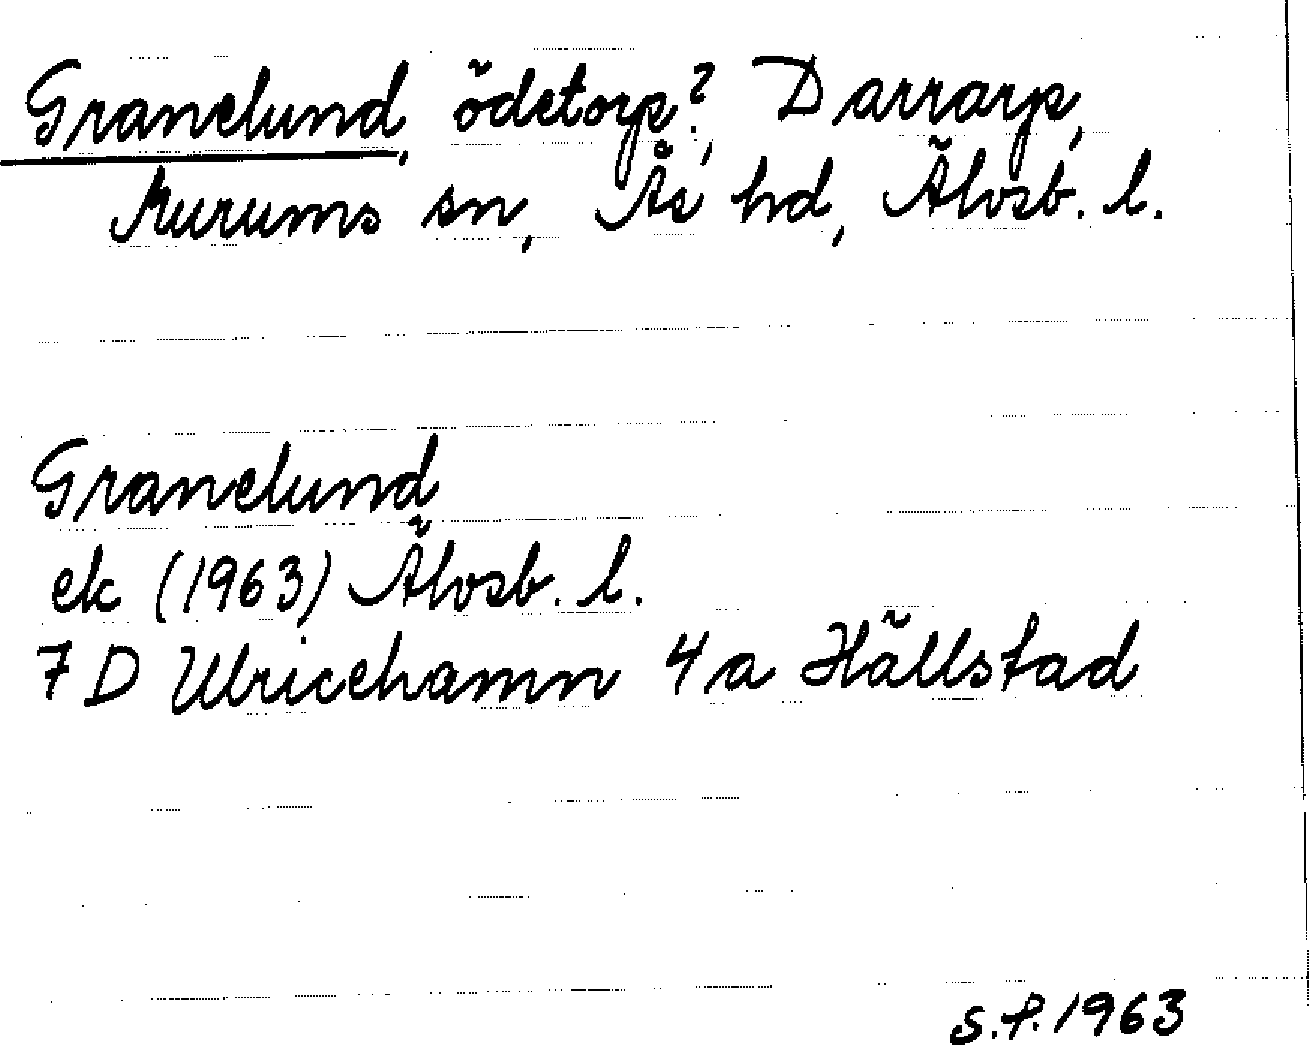 Granelund, ödetorp?, Darrarp,
Murums sn, Ås hd, Älvsb. l.
Granelund
ek (1963) Älvsb. l.
7 D Ulricehamn 4 a Hällstad
S.P. 1963